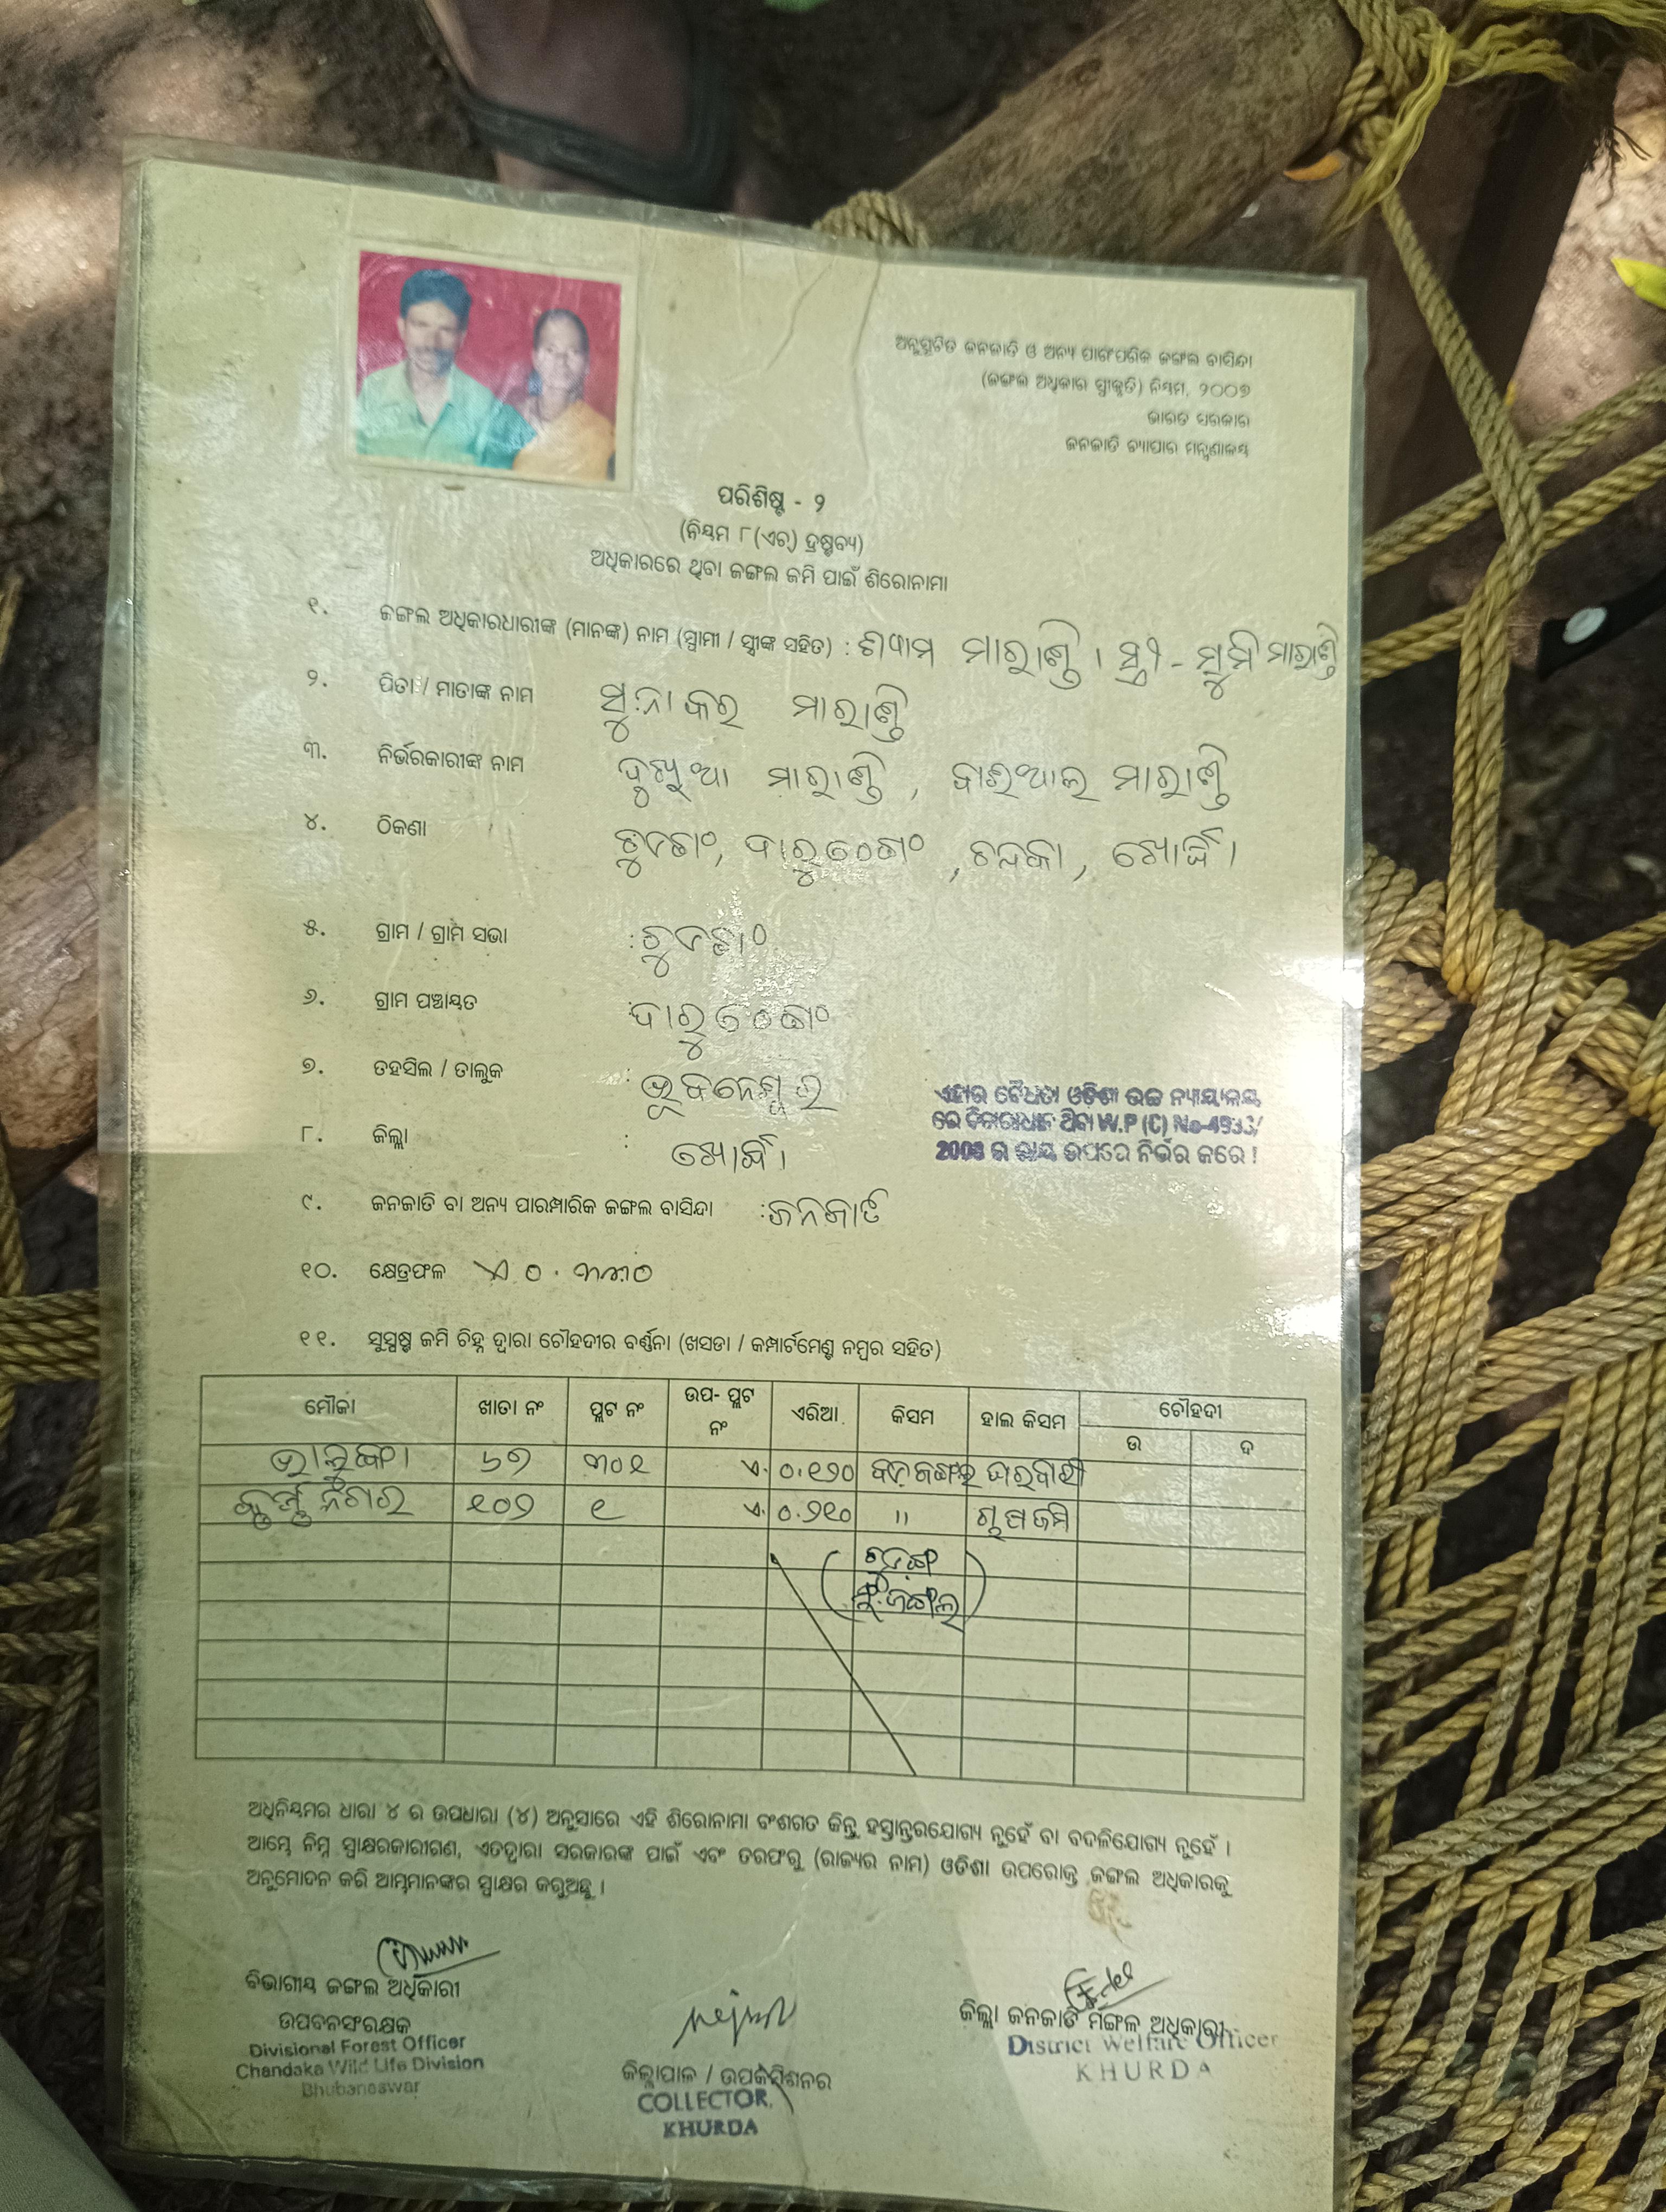 ଅନୁସୂଚିତ ଜନଜାତି ଓ ଅନ୍ୟ ପାରଂପରିକ ଜଙ୍ଗଲ ବାସିନ୍ଦା
(ଜଙ୍ଗଲ ଅଧିକାର ସ୍ୱୀକୃତି) ନିୟମ, ୨୦୦୭
ଭାରତ ସରକାର
ଜନଜାତି ବ୍ୟାପାର ମନ୍ତ୍ରଣାଳୟ
ପରିଶିଷ୍ଟ - ୨
(ନିୟମ ୮(ଏଚ୍) ଦ୍ରଷ୍ଟବ୍ୟ)
ଅଧିକାରରେ ଥିବା ଜଙ୍ଗଲ ଜମି ପାଇଁ ଶିରୋନାମା
୧. ଜଙ୍ଗଲ ଅଧିକାରଧାରୀଙ୍କ (ମାନଙ୍କ) ନାମ (ସ୍ୱାମୀ / ସ୍ତ୍ରୀଙ୍କ ସହିତ) : ଶ୍ୟାମ ମାରାଣ୍ଡି । ସ୍ତ୍ରୀ - ମାରାଣ୍ଡି
୨. ପିତା / ମାତାଙ୍କ ନାମ ସୁନାକର ମାରାଣ୍ଡି
୩. ନିର୍ଭରକାରୀଙ୍କ ନାମ ମାରାଣ୍ଡି , ମାରାଣ୍ଡି
୪. ଠିକଣା ଚୁଡଙ୍ଗ, ଦାରୁଠେଙ୍ଗ , ଚନ୍ଦକା , ଖୋର୍ଦ୍ଧା
୫. ଗ୍ରାମ / ଗ୍ରାମ ସଭା :
୬. ଗ୍ରାମ ପଞ୍ଚାୟତ : ଦାରୁଠେଙ୍ଗ
୭. ତହସିଲ / ତାଲୁକ : ଭୁବନେଶ୍ୱର
ଏହାର ବୈଧତା ଓଡିଶା ଉଚ୍ଚ ନ୍ୟାୟାଳୟ
ରେ ବିଚାରାଧୀନ ଥିବା W.P (C) No-4933/
2008 ର ରାୟ ଉପରେ ନିର୍ଭର କରେ !
୮. ଜିଲ୍ଲା : ଖୋର୍ଦ୍ଧା
୯. ଜନଜାତି ବା ଅନ୍ୟ ପାରମ୍ପାରିକ ଜଙ୍ଗଲ ବାସିନ୍ଦା : ଜନଜାତି
୧୦. କ୍ଷେତ୍ରଫଳ ଏ ୦.୩୩୦
୧୧. ସୁସ୍ପଷ୍ଟ ଜମି ଚିହ୍ନ ଦ୍ୱାରା ଚୌହଦୀର ବର୍ଣ୍ଣନା (ଖସଡା / କମ୍ପାର୍ଟମେଣ୍ଟ ନମ୍ବର ସହିତ)
ମୌଜା ଖାତା ନଂ ପ୍ଲଟ ନଂ ଉପ- ପ୍ଲଟ ନଂ ଏରିଆ କିସମ ହାଲ କିସମ ଚୌହଦୀ
ଉ ଦ
୬୭ ୩୦୧ ଏ. ୦.୧୨୦ ଘରବାରୀ
୧୦୨ ୧ ଏ. ୦.୨୧୦ " ଜମି
ଅଧିନିୟମର ଧାରା ୪ ର ଉପଧାରା (୪) ଅନୁସାରେ ଏହି ଶିରୋନାମା ବଂଶଗତ କିନ୍ତୁ ହସ୍ତାନ୍ତରଯୋଗ୍ୟ ନୁହେଁ ବା ବଦଳିଯୋଗ୍ୟ ନୁହେଁ ।
ଆମ୍ଭେ ନିମ୍ନ ସ୍ୱାକ୍ଷରକାରୀଗଣ, ଏତଦ୍ୱାରା ସରକାରଙ୍କ ପାଇଁ ଏବଂ ତରଫରୁ (ରାଜ୍ୟର ନାମ) ଓଡିଶା ଉପରୋକ୍ତ ଜଙ୍ଗଲ ଅଧିକାରକୁ
ଅନୁମୋଦନ କରି ଆମ୍ଭମାନଙ୍କର ସ୍ୱାକ୍ଷର କରୁଅଛୁ ।
ବିଭାଗୀୟ ଜଙ୍ଗଲ ଅଧିକାରୀ
ଉପବନସଂରକ୍ଷକ
Divisional Forest Officer
Chandaka Wild Life Division
Bhubaneswar
ଜିଲ୍ଲାପାଳ / ଉପକମିଶନର
COLLECTOR,
KHURDA
ଜିଲ୍ଲା ଜନଜାତି ମଙ୍ଗଳ ଅଧିକାରୀ
District Welfare Officer
KHURDA